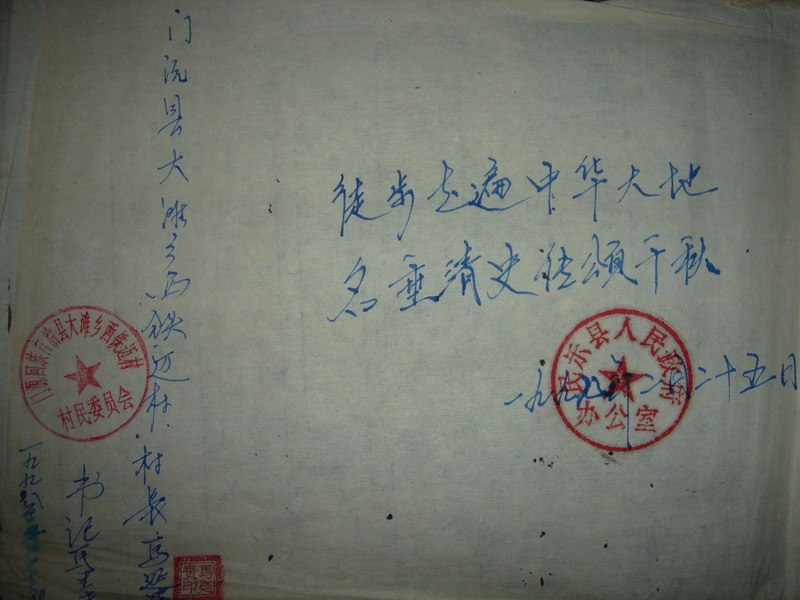 徒步走遍中华大地
名垂清史传颂千秋
一九九 年二月二十五日
示县人民政府
办公室
门沅县大滩乡西铁迈村
村长马延
书记
门源回族自治县大滩乡西铁迈村
村民委员会
一九九